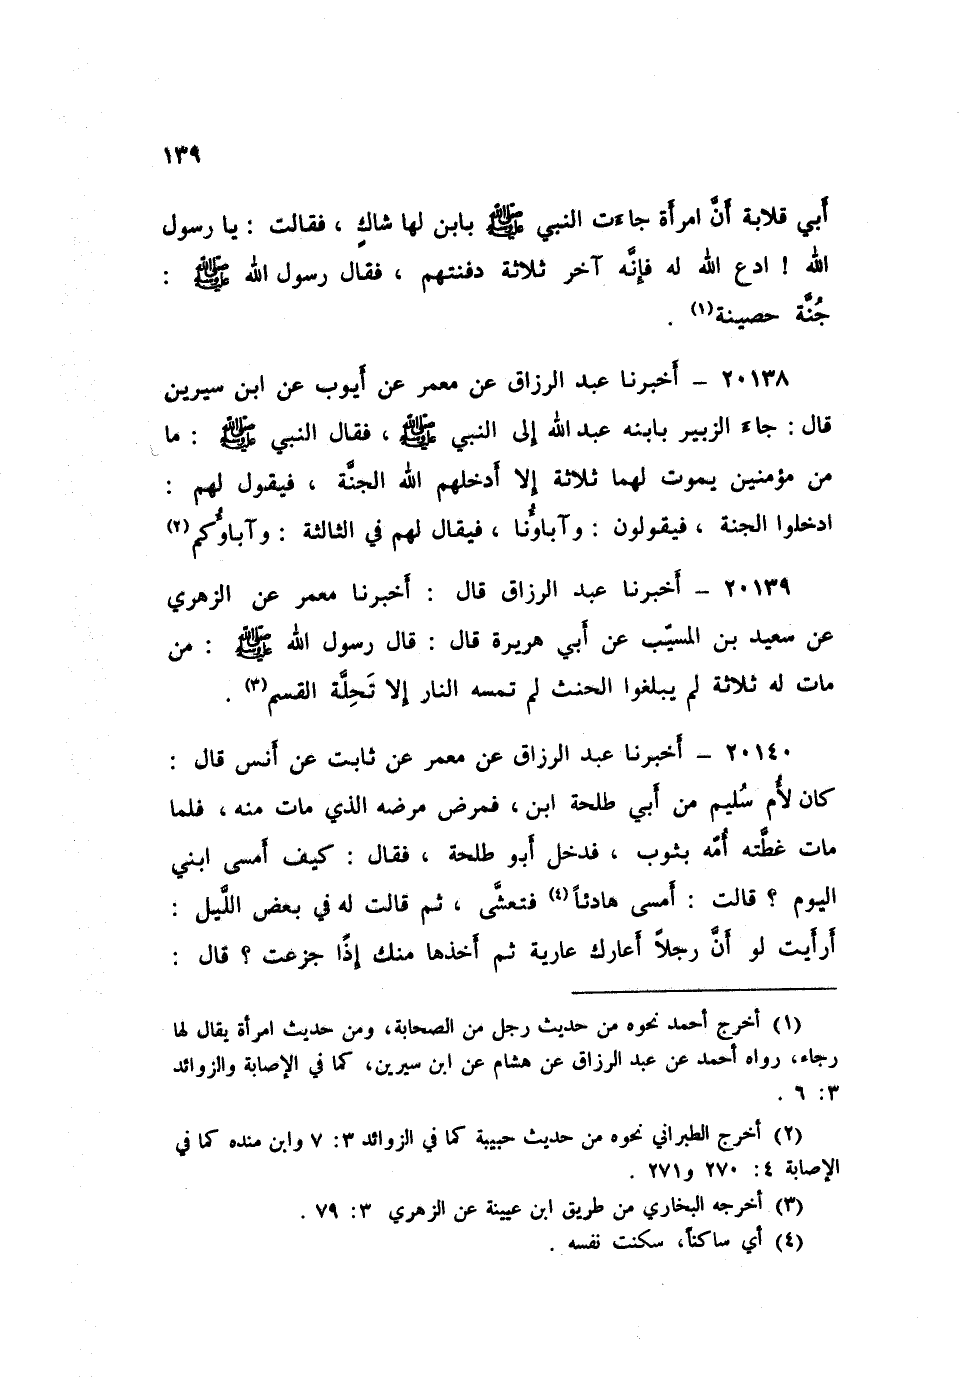 ١٣٩
أَبي قلابة أَنَّ امرأَة جاءَت النبي ﷺ بابن لها شاكٍ ، فقالت : يا رسول
الله ! ادع الله له فإِنَّه آخر ثلاثة دفنتهم ، فقال رسول الله ﷺ :
جُنَّة حصينة(١) .
٢٠١٣٨ – أَخبرنا عبد الرزاق عن معمر عن أَيوب عن ابن سيرين
قال : جاءَ الزبير بابنه عبد الله إِلى النبي ﷺ ، فقال النبي ﷺ : ما
من مؤمنين يموت لهما ثلاثة إِلا أَدخلهم الله الجنَّة ، فيقول لهم :
ادخلوا الجنة ، فيقولون : وآباؤُنا ، فيقال لهم في الثالثة : وآباؤُكم(٢)
٢٠١٣٩ – أَخبرنا عبد الرزاق قال : أَخبرنا معمر عن الزهري
عن سعيد بن المسيّب عن أَبي هريرة قال : قال رسول الله ﷺ : من
مات له ثلاثة لم يبلغوا الحنث لم تمسه النار إِلا تَحِلَّة القسم(٣) .
٢٠١٤٠ – أَخبرنا عبد الرزاق عن معمر عن ثابت عن أَنس قال :
كان لأُم سُليم من أَبي طلحة ابن ، فمرض مرضه الذي مات منه ، فلما
مات غطَّته أُمّه بثوب ، فدخل أَبو طلحة ، فقال : كيف أَمسى ابني
اليوم ؟ قالت : أَمسى هادئاً(٤) فتعشَّى ، ثم قالت له في بعض اللَّيل :
أَرأَيت لو أَنَّ رجلاً أَعارك عارية ثم أَخذها منك إِذًا جزعت ؟ قال :
(١) أخرج أحمد نحوه من حديث رجل من الصحابة، ومن حديث امرأة يقال لها
رجاء، رواه أحمد عن عبد الرزاق عن هشام عن ابن سيرين، كما في الإصابة والزوائد
٣: ٦ .
(٢) أخرج الطبراني نحوه من حديث حبيبة كما في الزوائد ٣: ٧ وابن منده كما في
الإصابة ٤: ٢٧٠ و٢٧١ .
(٣) أخرجه البخاري من طريق ابن عيينة عن الزهري ٣: ٧٩ .
(٤) أي ساكناً، سكنت نفسه .